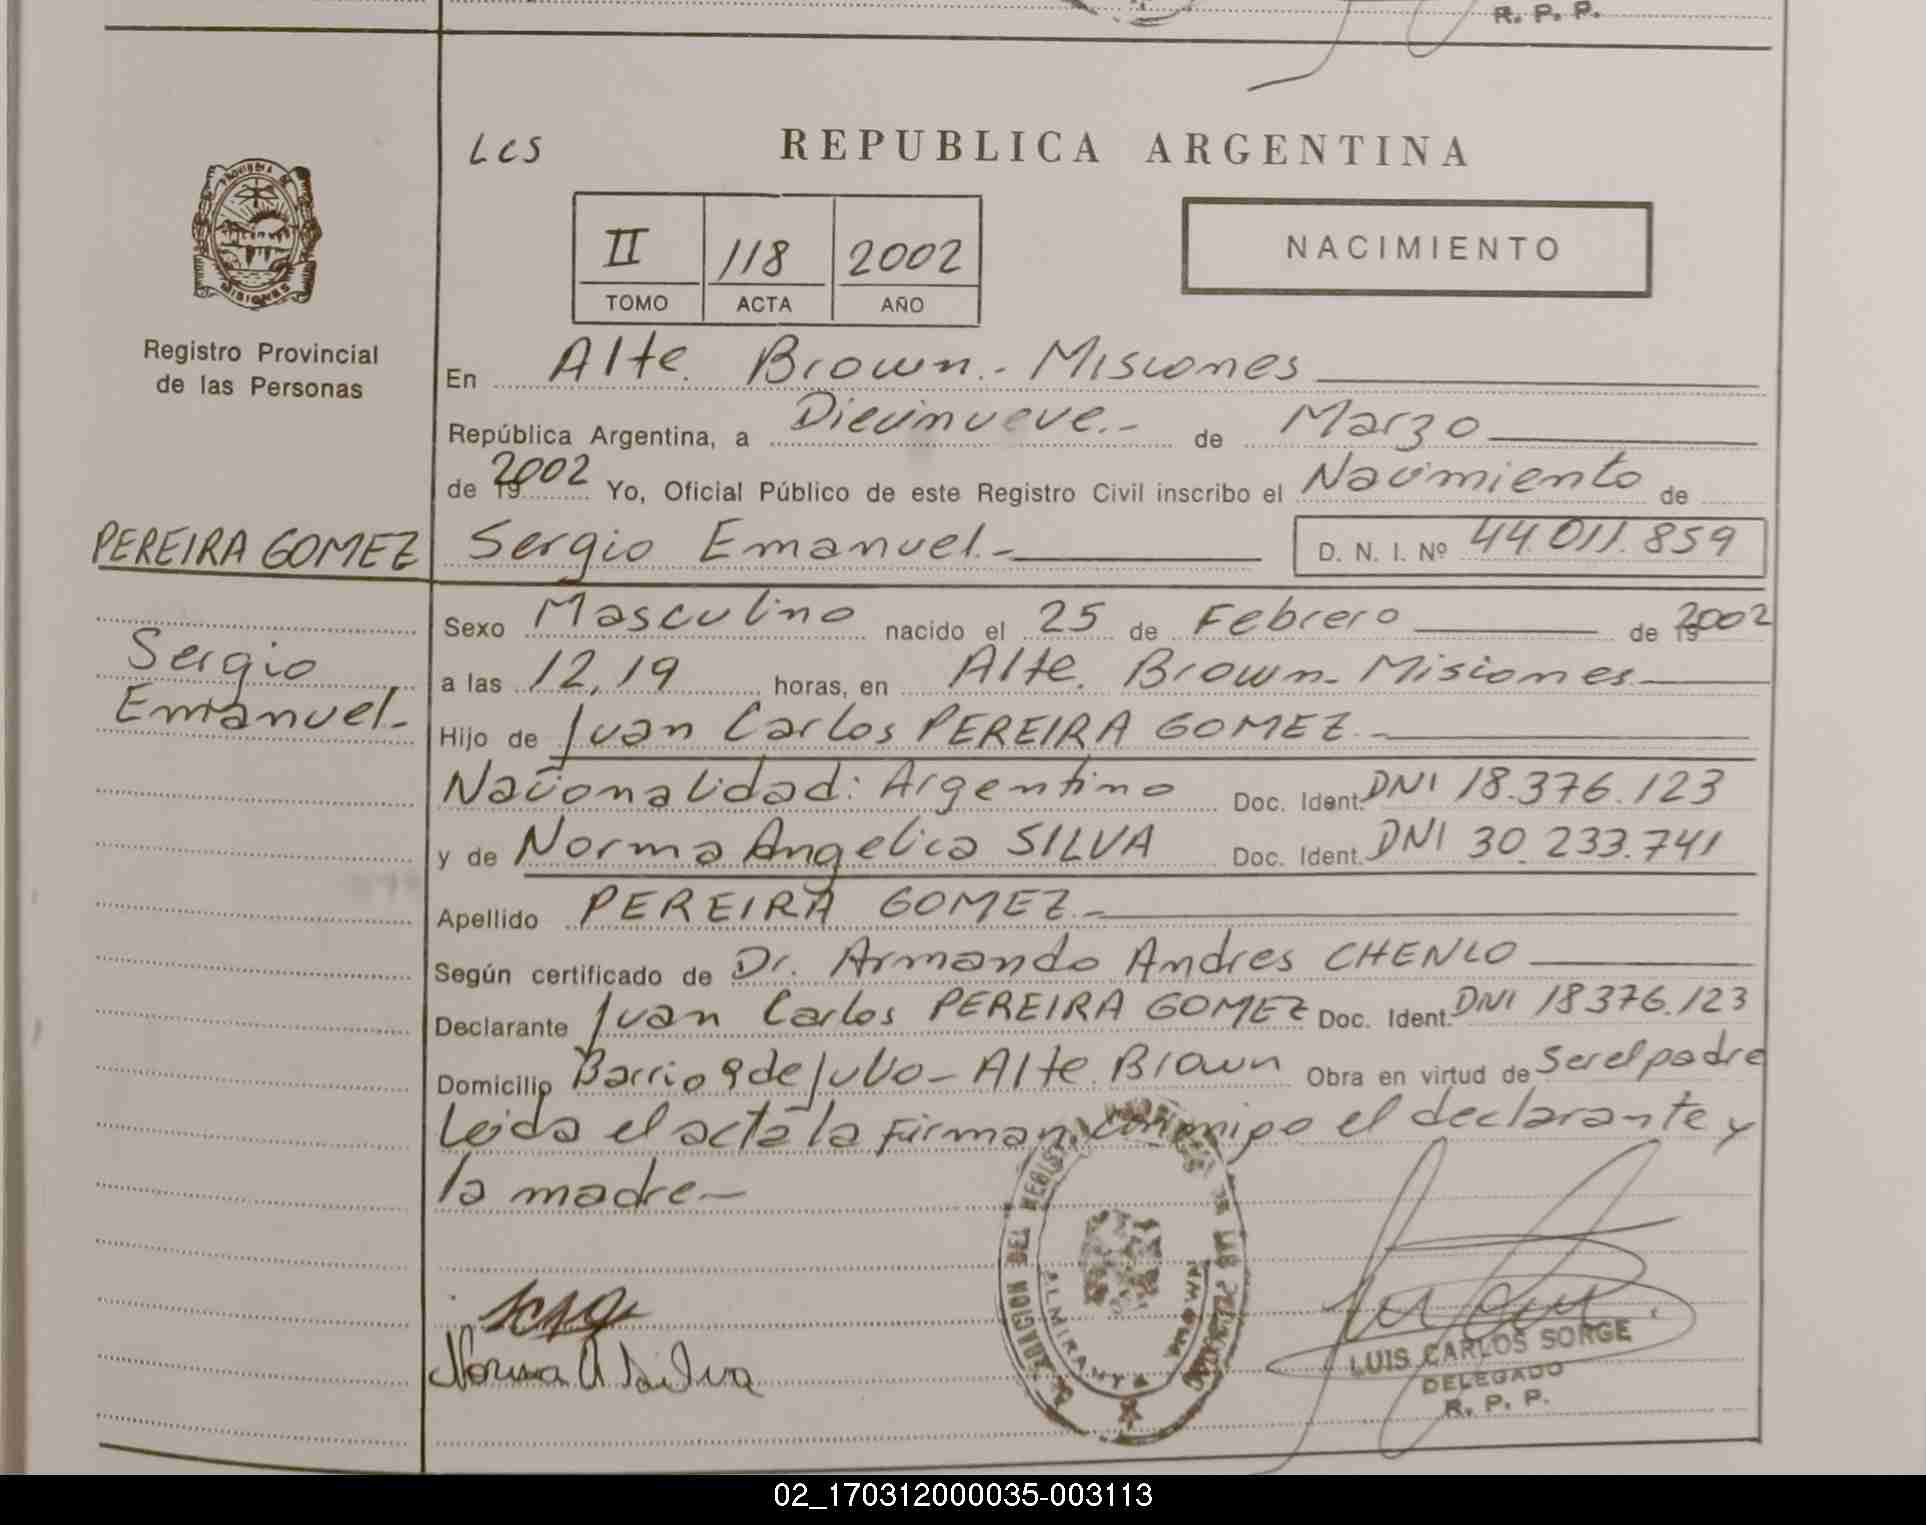 R. P. P.
LCS
REPUBLICA ARGENTINA
PROVINCIA DE
MISIONES
II
118
2002
TOMO
ACTA
AÑO
NACIMIENTO
Registro Provincial
de las Personas
En Alte. Brown.- Misiones
República Argentina, a Diecinueve.- de Marzo
de 192002 Yo, Oficial Público de este Registro Civil inscribo el Nacimiento de
PEREIRA GOMEZ
Sergio Emanuel.- D. N. I. Nº 44.011.859
Sexo Masculino nacido el 25 de Febrero de 192002
Sergio
Emanuel.-
a las 12,19 horas, en Alte. Brown - Misiones
Hijo de Juan Carlos PEREIRA GOMEZ.-
Nacionalidad: Argentino Doc. Ident. DNI 18.376.123
y de Norma Angelica SILVA Doc. Ident. DNI 30.233.741
Apellido PEREIRA GOMEZ.-
Según certificado de Dr. Armando Andres CHENLO
Declarante Juan Carlos PEREIRA GOMEZ Doc. Ident. DNI 18376.123
Domicilio Barrio 9 de Julio - Alte. Brown Obra en virtud de Ser el padre
Leida el acta la Firman conmigo el declarante y
la madre-
Norma A Silva
ALMIRANTE BROWN
LUIS CARLOS SORGE
DELEGADO
R. P. P.
02_170312000035-003113